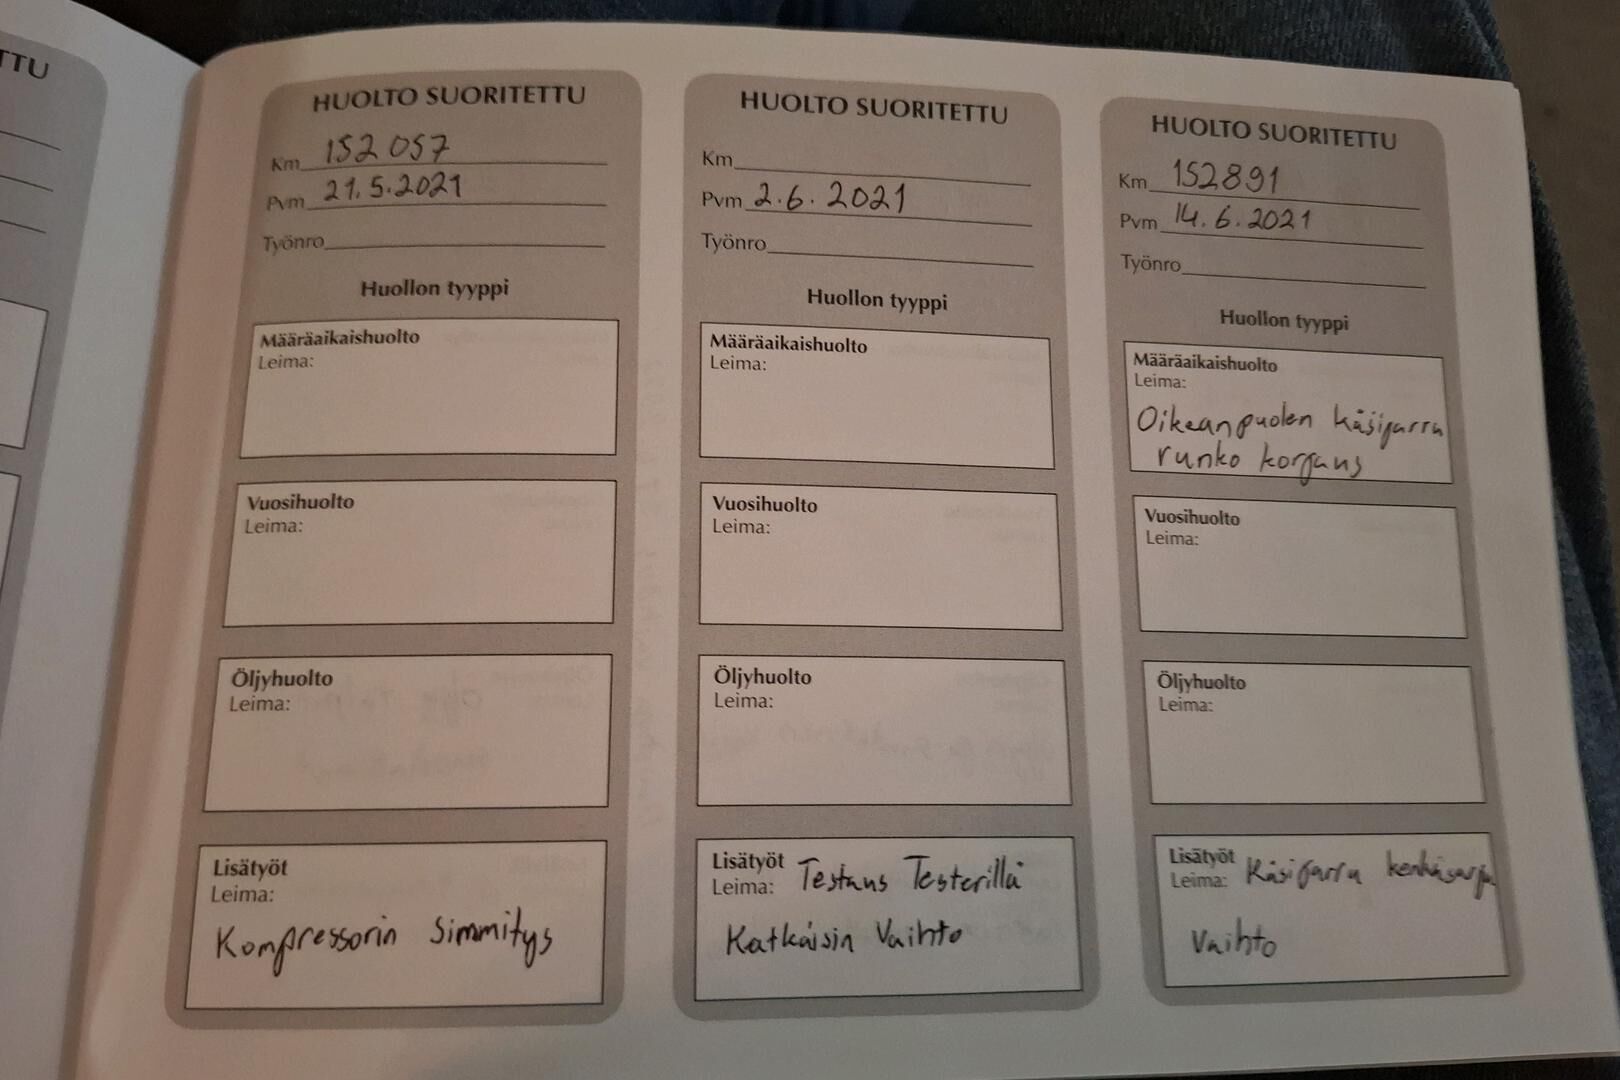 TTU
HUOLTO SUORITETTU
Km 152 057
Pvm 21.5.2021
Työnro
Huollon tyyppi
Määräaikaishuolto
Leima:
Vuosihuolto
Leima:
Öljyhuolto
Leima:
Lisätyöt
Leima:
Kompressorin Simmitys
HUOLTO SUORITETTU
Km
Pvm 2.6.2021
Työnro
Huollon tyyppi
Määräaikaishuolto
Leima:
Vuosihuolto
Leima:
Öljyhuolto
Leima:
Lisätyöt
Leima: Testaus Testerillä
Katkaisin Vaihto
HUOLTO SUORITETTU
Km 152891
Pvm 14.6.2021
Työnro
Huollon tyyppi
Määräaikaishuolto
Leima:
Oikeanpuolen käsijarru
runko korjaus
Vuosihuolto
Leima:
Öljyhuolto
Leima:
Lisätyöt
Leima: Käsijarru kenkäsarja
Vaihto